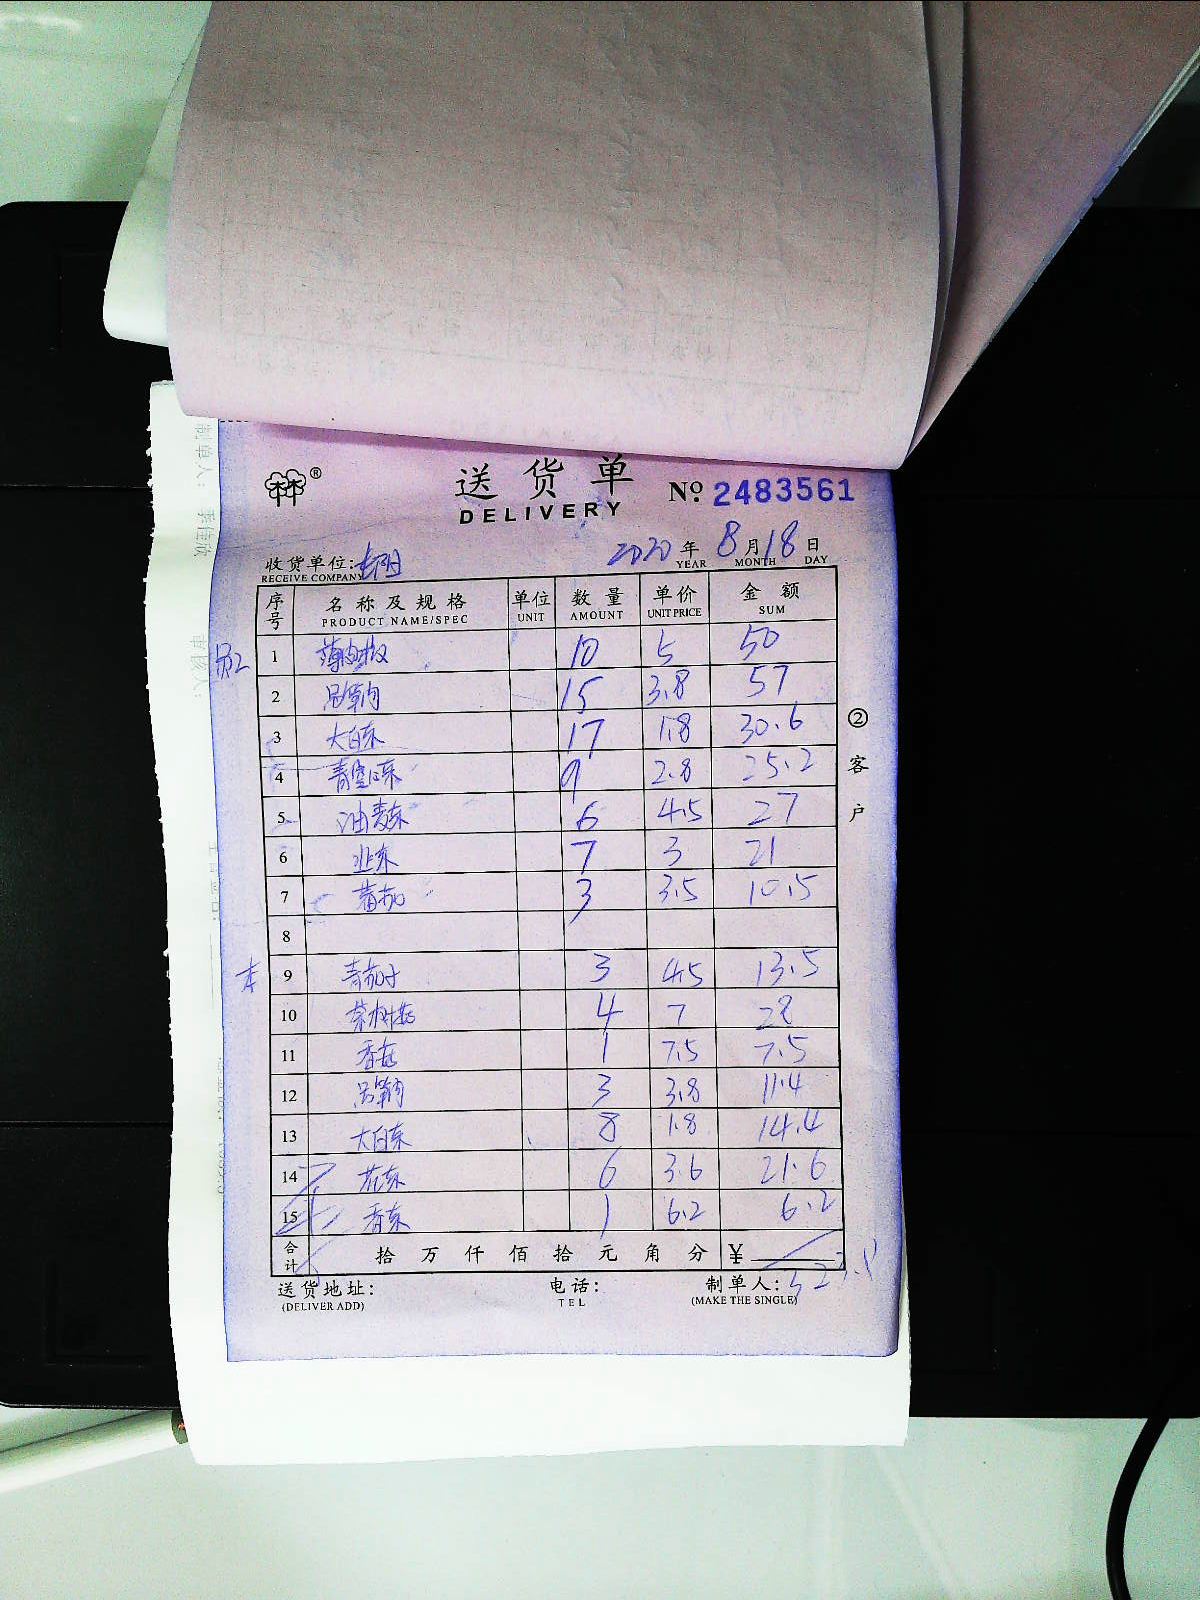 送货单
DELIVERY
№ 2483561
收货单位:
RECEIVE COMPANY
2020 年 8 月 18 日
YEAR MONTH DAY
序号 名称及规格 单位 数量 单价 金额
PRODUCT NAME/SPEC UNIT AMOUNT UNIT PRICE SUM
员工
1 薄肉椒 10 5 50
2 15 3.8 57
3 大白东 17 1.8 30.6
4 青空心东 9 2.8 25.2
5 油麦东 6 4.5 27
6 7 3 21
7 蕃茄 3 3.5 10.5
8
9 青茄子 3 4.5 13.5
10 茶树菇 4 7 28
11 香菇 1 7.5 7.5
12 3 3.8 11.4
13 大白东 8 1.8 14.4
14 花东 6 3.6 21.6
15 香东 1 6.2 6.2
合计 拾 万 仟 佰 拾 元 角 分 ¥
送货地址: 电话: 制单人:
(DELIVER ADD) TEL (MAKE THE SINGLE)
② 客户
制单人:
审核人: